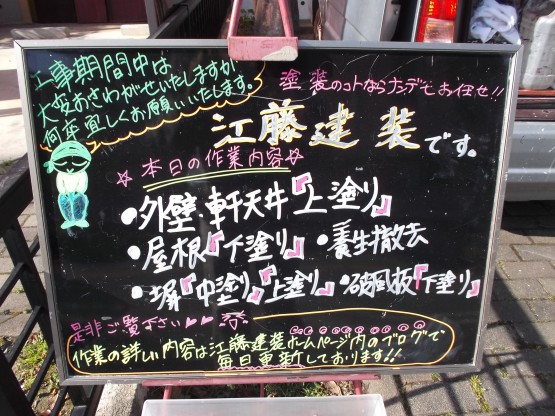 工事期間中は
大変おさわがせいたしますが
何卒宜しくお願いいたします。
塗装のコトならナンデもお任せ!!
江藤建装です。
☆本日の作業内容☆
・外壁・軒天井『上塗り』
・屋根『下塗り』・養生撤去
・塀『中塗り』『上塗り』・破風板『下塗り』
是非ご覧下さい
作業の詳しい内容は江藤建装ホームページ内のブログで
毎日更新しております!!